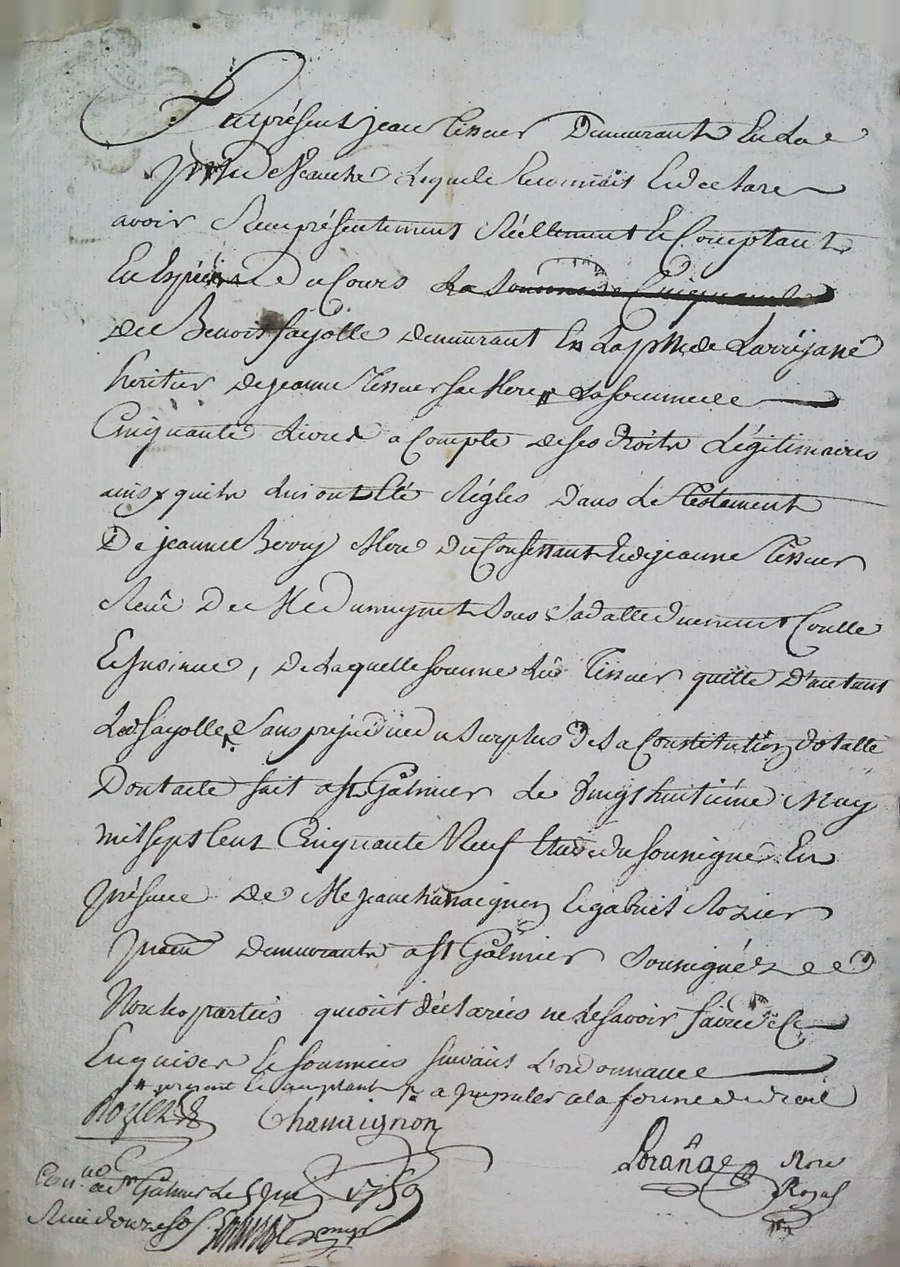 Fut présent jean Tissier Demeurant En La
psse de lequel reconnait Et declare
avoir Reeu présentement Réellement Et Comptant
En Espèces du Cours La Somme de Cinquante
de Benoit fayolle demeurant En La psse de Larrajasse
heritier de jeanne Tissier sa Mere La somme de
Cinquante Livres a Compte de ses droits Légitimaires
qui ont Eté Réglés Dans Le Testament
De jeanne Berry Mere du Confessant Et de jeanne Tissier
Receu Me Dumignet sous sa datte duement Conlle
Et Insinue, De Laquelle somme Led Tissier quitte D'autant
Led fayolle, Sans prejudice du surplus De sa Constitution Dotalle
Dont acte fait a St Galmier Le Vingt huitiéme May
mil sept Cent Cinquante Neuf Etude du soussigné En
présence De Me jean Chanaignon Et gabriel Rozier
demeurants a St Galmier soussignés
Non les parties qui ont déclarées ne Le savoir faire de Ce
Enquises Et sommées suivant L'ordonnance
present Et acceptant a la forme du droit
Rozier Chanaignon
Lorange Nore
Royal
Con. a St Galmier Le 5 Juin 1759
Reçu douze sols